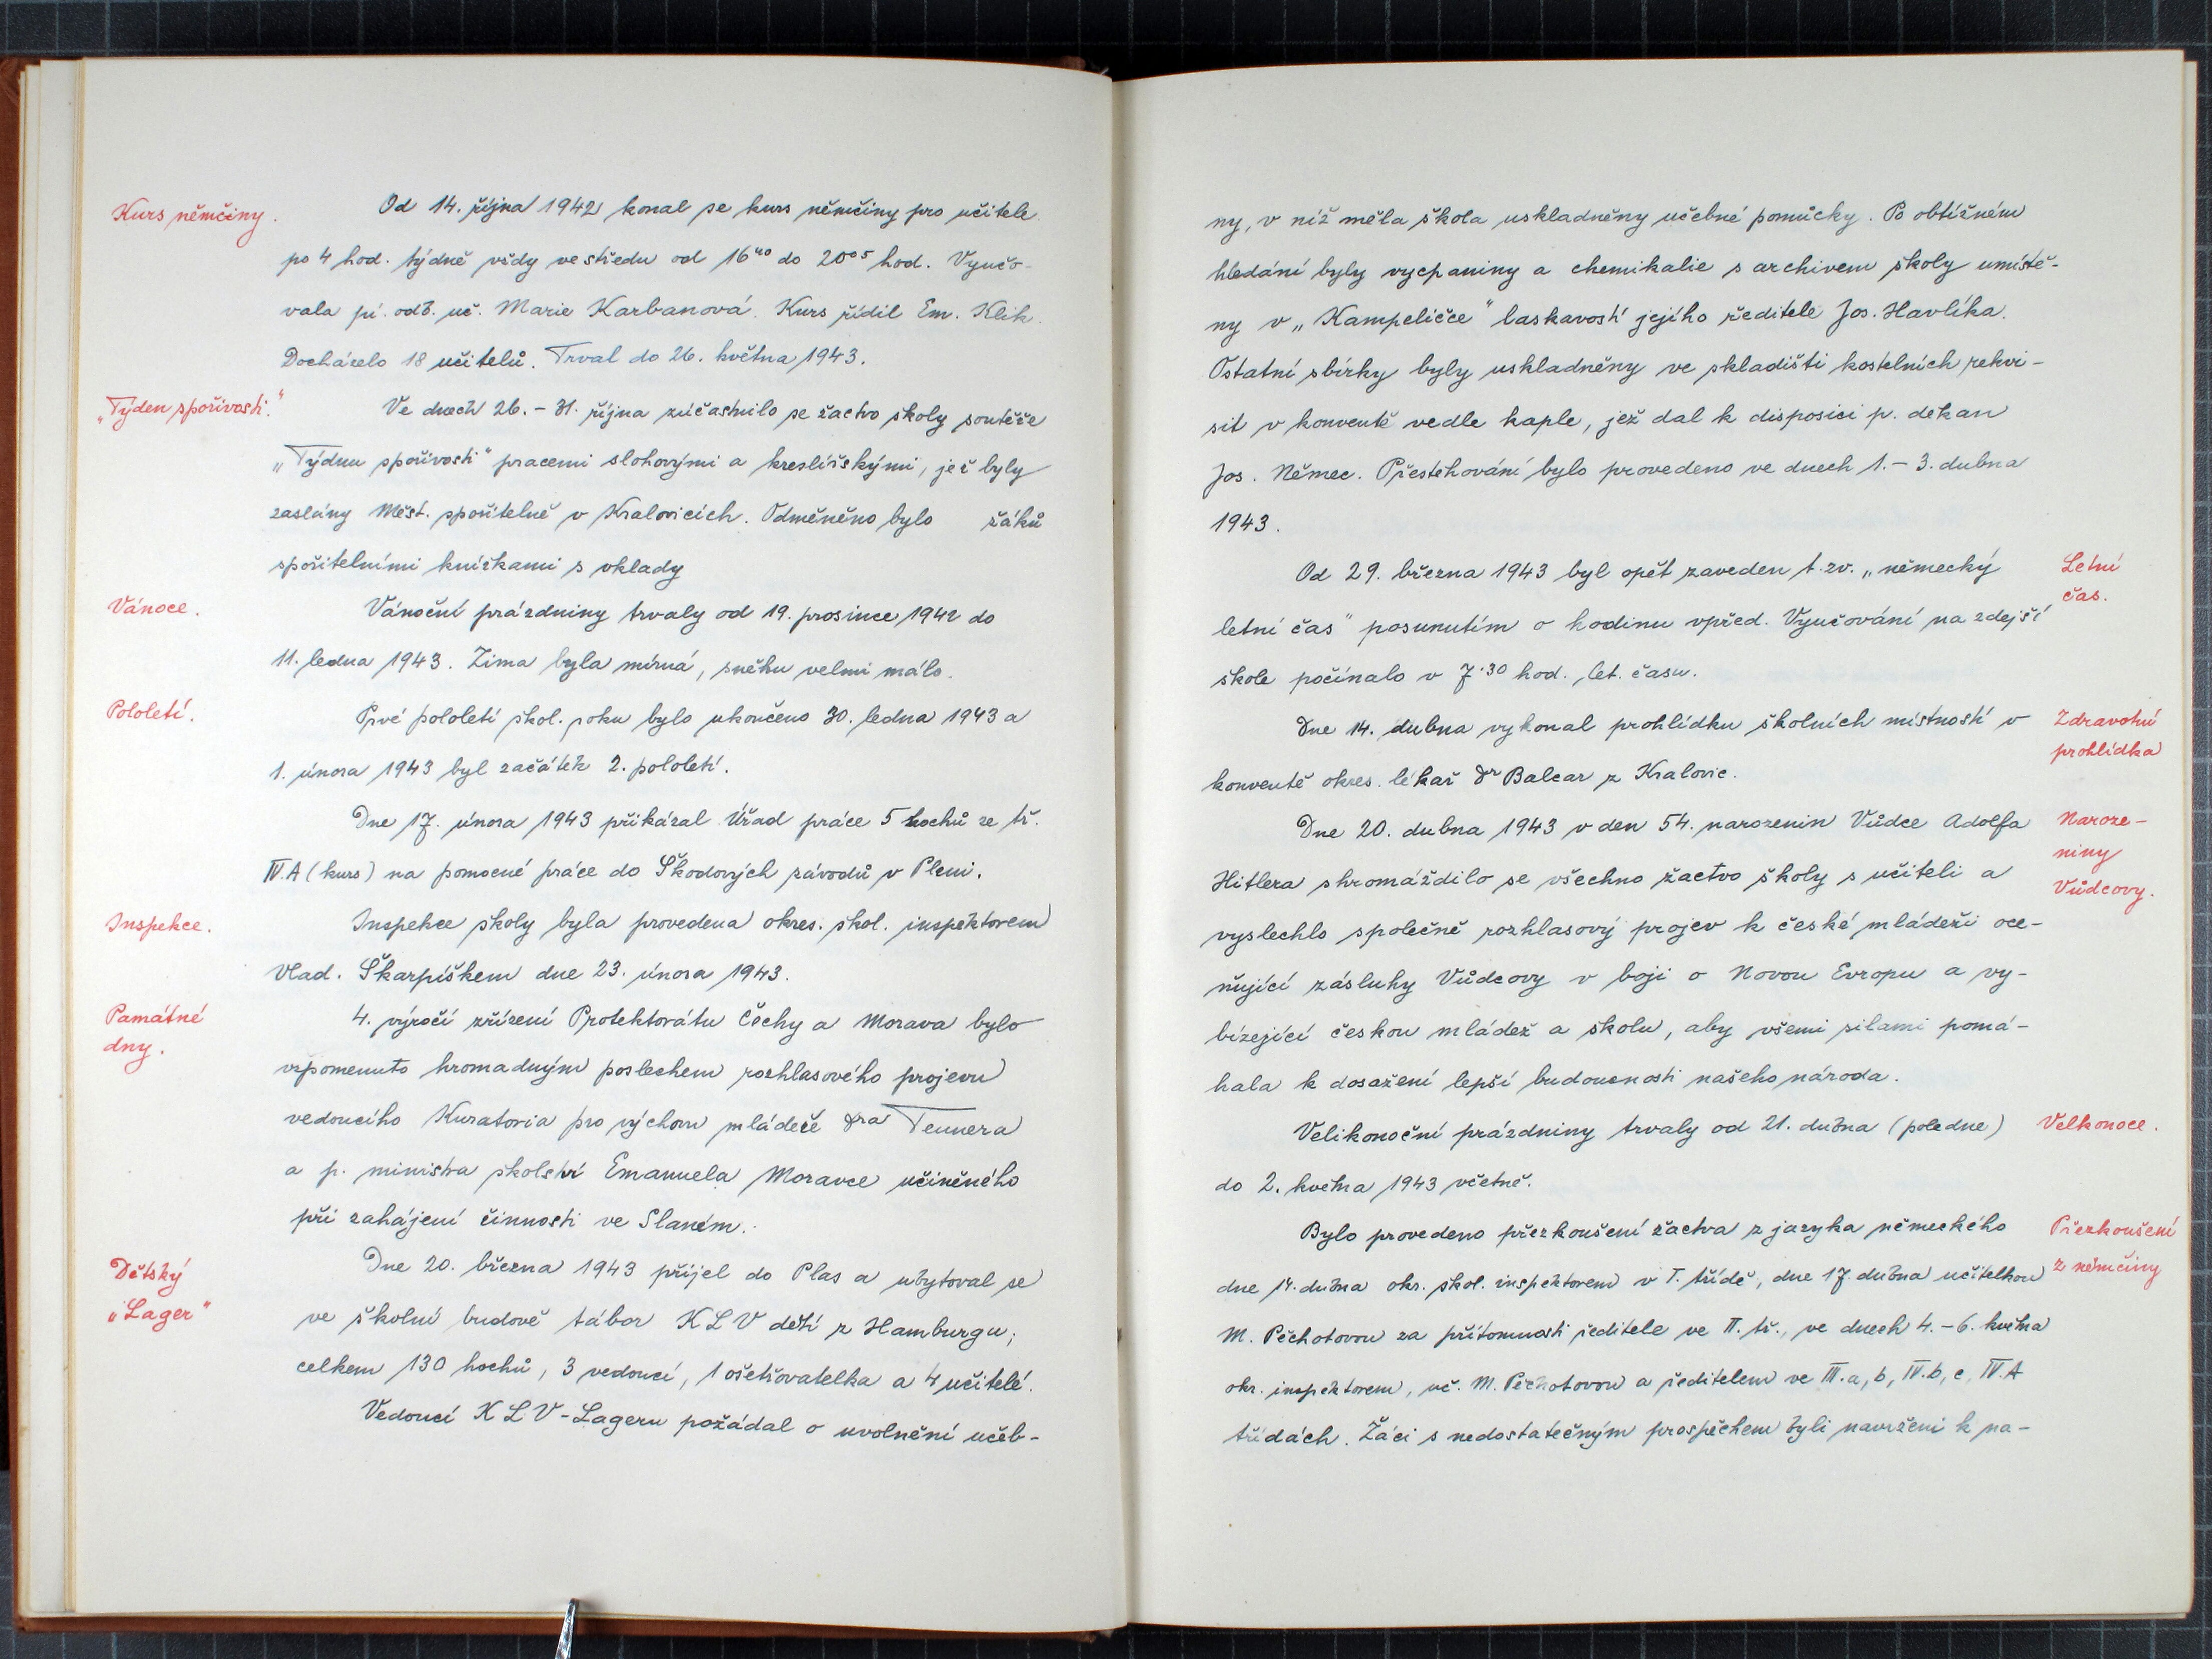 Kurs němčiny.
Od 14. října 1942 konal se kurs němčiny pro učitele
po 4 hod. týdně vždy ve středu od 16⁴⁰ do 20⁰⁵ hod. Vyučo-
vala pí. odb. uč. Marie Karbanová. Kurs řídil Em. Klik.
Docházelo 18 učitelů. Trval do 26. května 1943.
„Týden spořivosti."
Ve dnech 26. – 31. října zúčastnilo se žactvo školy soutěže
„Týdnu spořivosti" pracemi slohovými a kreslířskými, jež byly
zaslány Měst. spořitelně v Kralovicích. Odměněno bylo žáků
spořitelními knížkami s vklady
Vánoce.
Vánoční prázdniny trvaly od 19. prosince 1942 do
11. ledna 1943. Zima byla mírná, sněhu velmi málo.
Pololetí.
Prvé pololetí škol. roku bylo ukončeno 30. ledna 1943 a
1. února 1943 byl začátek 2. pololetí.
Dne 17. února 1943 přikázal Úřad práce 5 hochů ze tř.
IV.A (kurs) na pomocné práce do Škodových závodů v Plzni.
Inspekce.
Inspekce školy byla provedena okres. škol. inspektorem
Vlad. Škarpíškem dne 23. února 1943.
Památné
dny.
4. výročí zřízení Protektorátu Čechy a Morava bylo
vzpomenuto hromadným poslechem rozhlasového projevu
vedoucího Kuratoria pro výchovu mládeže Dra Teunera
a p. ministra školství Emanuela Moravce učiněného
při zahájení činnosti ve Slaném.
Dětský
„Lager"
Dne 20. března 1943 přijel do Plas a ubytoval se
ve školní budově tábor KLV dětí z Hamburgu;
celkem 130 hochů, 3 vedoucí, 1 ošetřovatelka a 4 učitelé.
Vedoucí KLV-Lageru požádal o uvolnění učeb-
ny, v níž měla škola uskladněny učebné pomůcky. Po obtížném
hledání byly vycpaniny a chemikalie s archivem školy umístě-
ny v „Kampeličce" laskavostí jejího ředitele Jos. Havlíka.
Ostatní sbírky byly uskladněny ve skladišti kostelních rekvi-
sit v konventě vedle kaple, jež dal k disposici p. děkan
Jos. Němec. Přestěhování bylo provedeno ve dnech 1. – 3. dubna
1943.
Od 29. března 1943 byl opět zaveden t. zv. „německý
letní čas" posunutím o hodinu vpřed. Vyučování na zdejší
škole počínalo v 7·30 hod. let. času.
Letní
čas.
Dne 14. dubna vykonal prohlídku školních místností v
konventě okres. lékař Dr Balcar z Kralovic.
Zdravotní
prohlídka
Dne 20. dubna 1943 v den 54. narozenin Vůdce Adolfa
Hitlera shromáždilo se všechno žactvo školy s učiteli a
vyslechlo společně rozhlasový projev k české mládeži oce-
ňující zásluhy Vůdcovy v boji o Novou Evropu a vy-
bízející českou mládež a školu, aby všemi silami pomá-
hala k dosažení lepší budoucnosti našeho národa.
Naroze-
niny
Vůdcovy.
Velikonoční prázdniny trvaly od 21. dubna (poledne)
do 2. května 1943 včetně.
Velkonoce.
Bylo provedeno přezkoušení žactva z jazyka německého
dne 14. dubna okr. škol. inspektorem v I. třídě, dne 17. dubna učitelkou
M. Pěchotovou za přítomnosti ředitele ve II. tř., ve dnech 4. – 6. května
okr. inspektorem, uč. M. Pěchotovou a ředitelem ve III. a, b, IV. b, c, IV.A
třídách. Žáci s nedostatečným prospěchem byli navrženi k na-
Přezkoušení
z němčiny